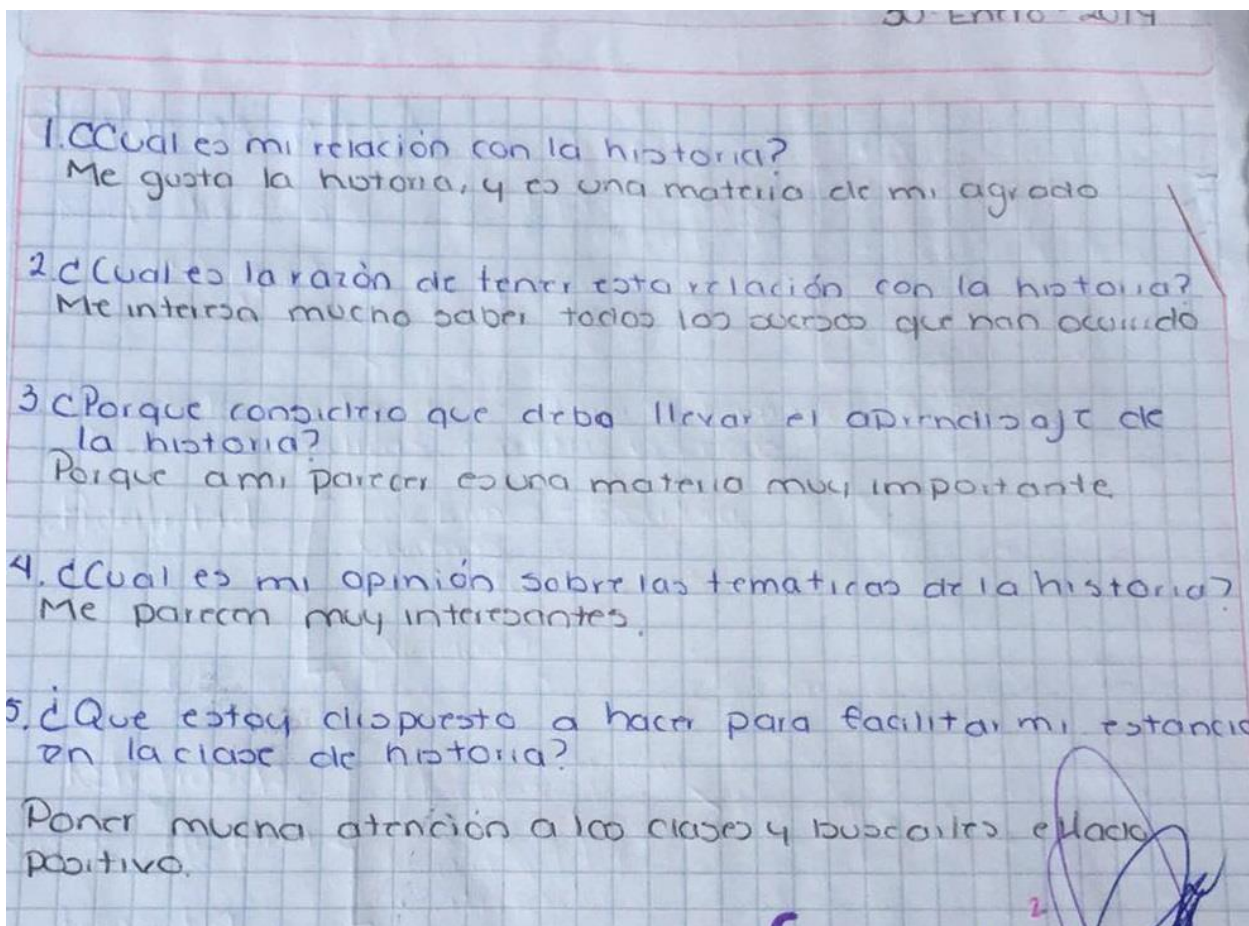 30-Enero-2019
1. ¿Cual es mi relación con la historia?
Me gusta la historia, y es una materia de mi agrado
2. ¿Cual es la razón de tener esta relación con la historia?
Me interesa mucho saber todos los sucesos que han ocurrido
3 ¿Porque considero que debo llevar el aprendisaje de
la historia?
Porque ami parecer es una materia muy importante
4. ¿Cual es mi opinión sobre las tematicas de la historia?
Me parecen muy interesantes.
5. ¿Que estoy dispuesto a hacer para facilitar mi estancia
en la clase de historia?
Poner mucha atención a las clases y buscarles el lado
positivo.
2